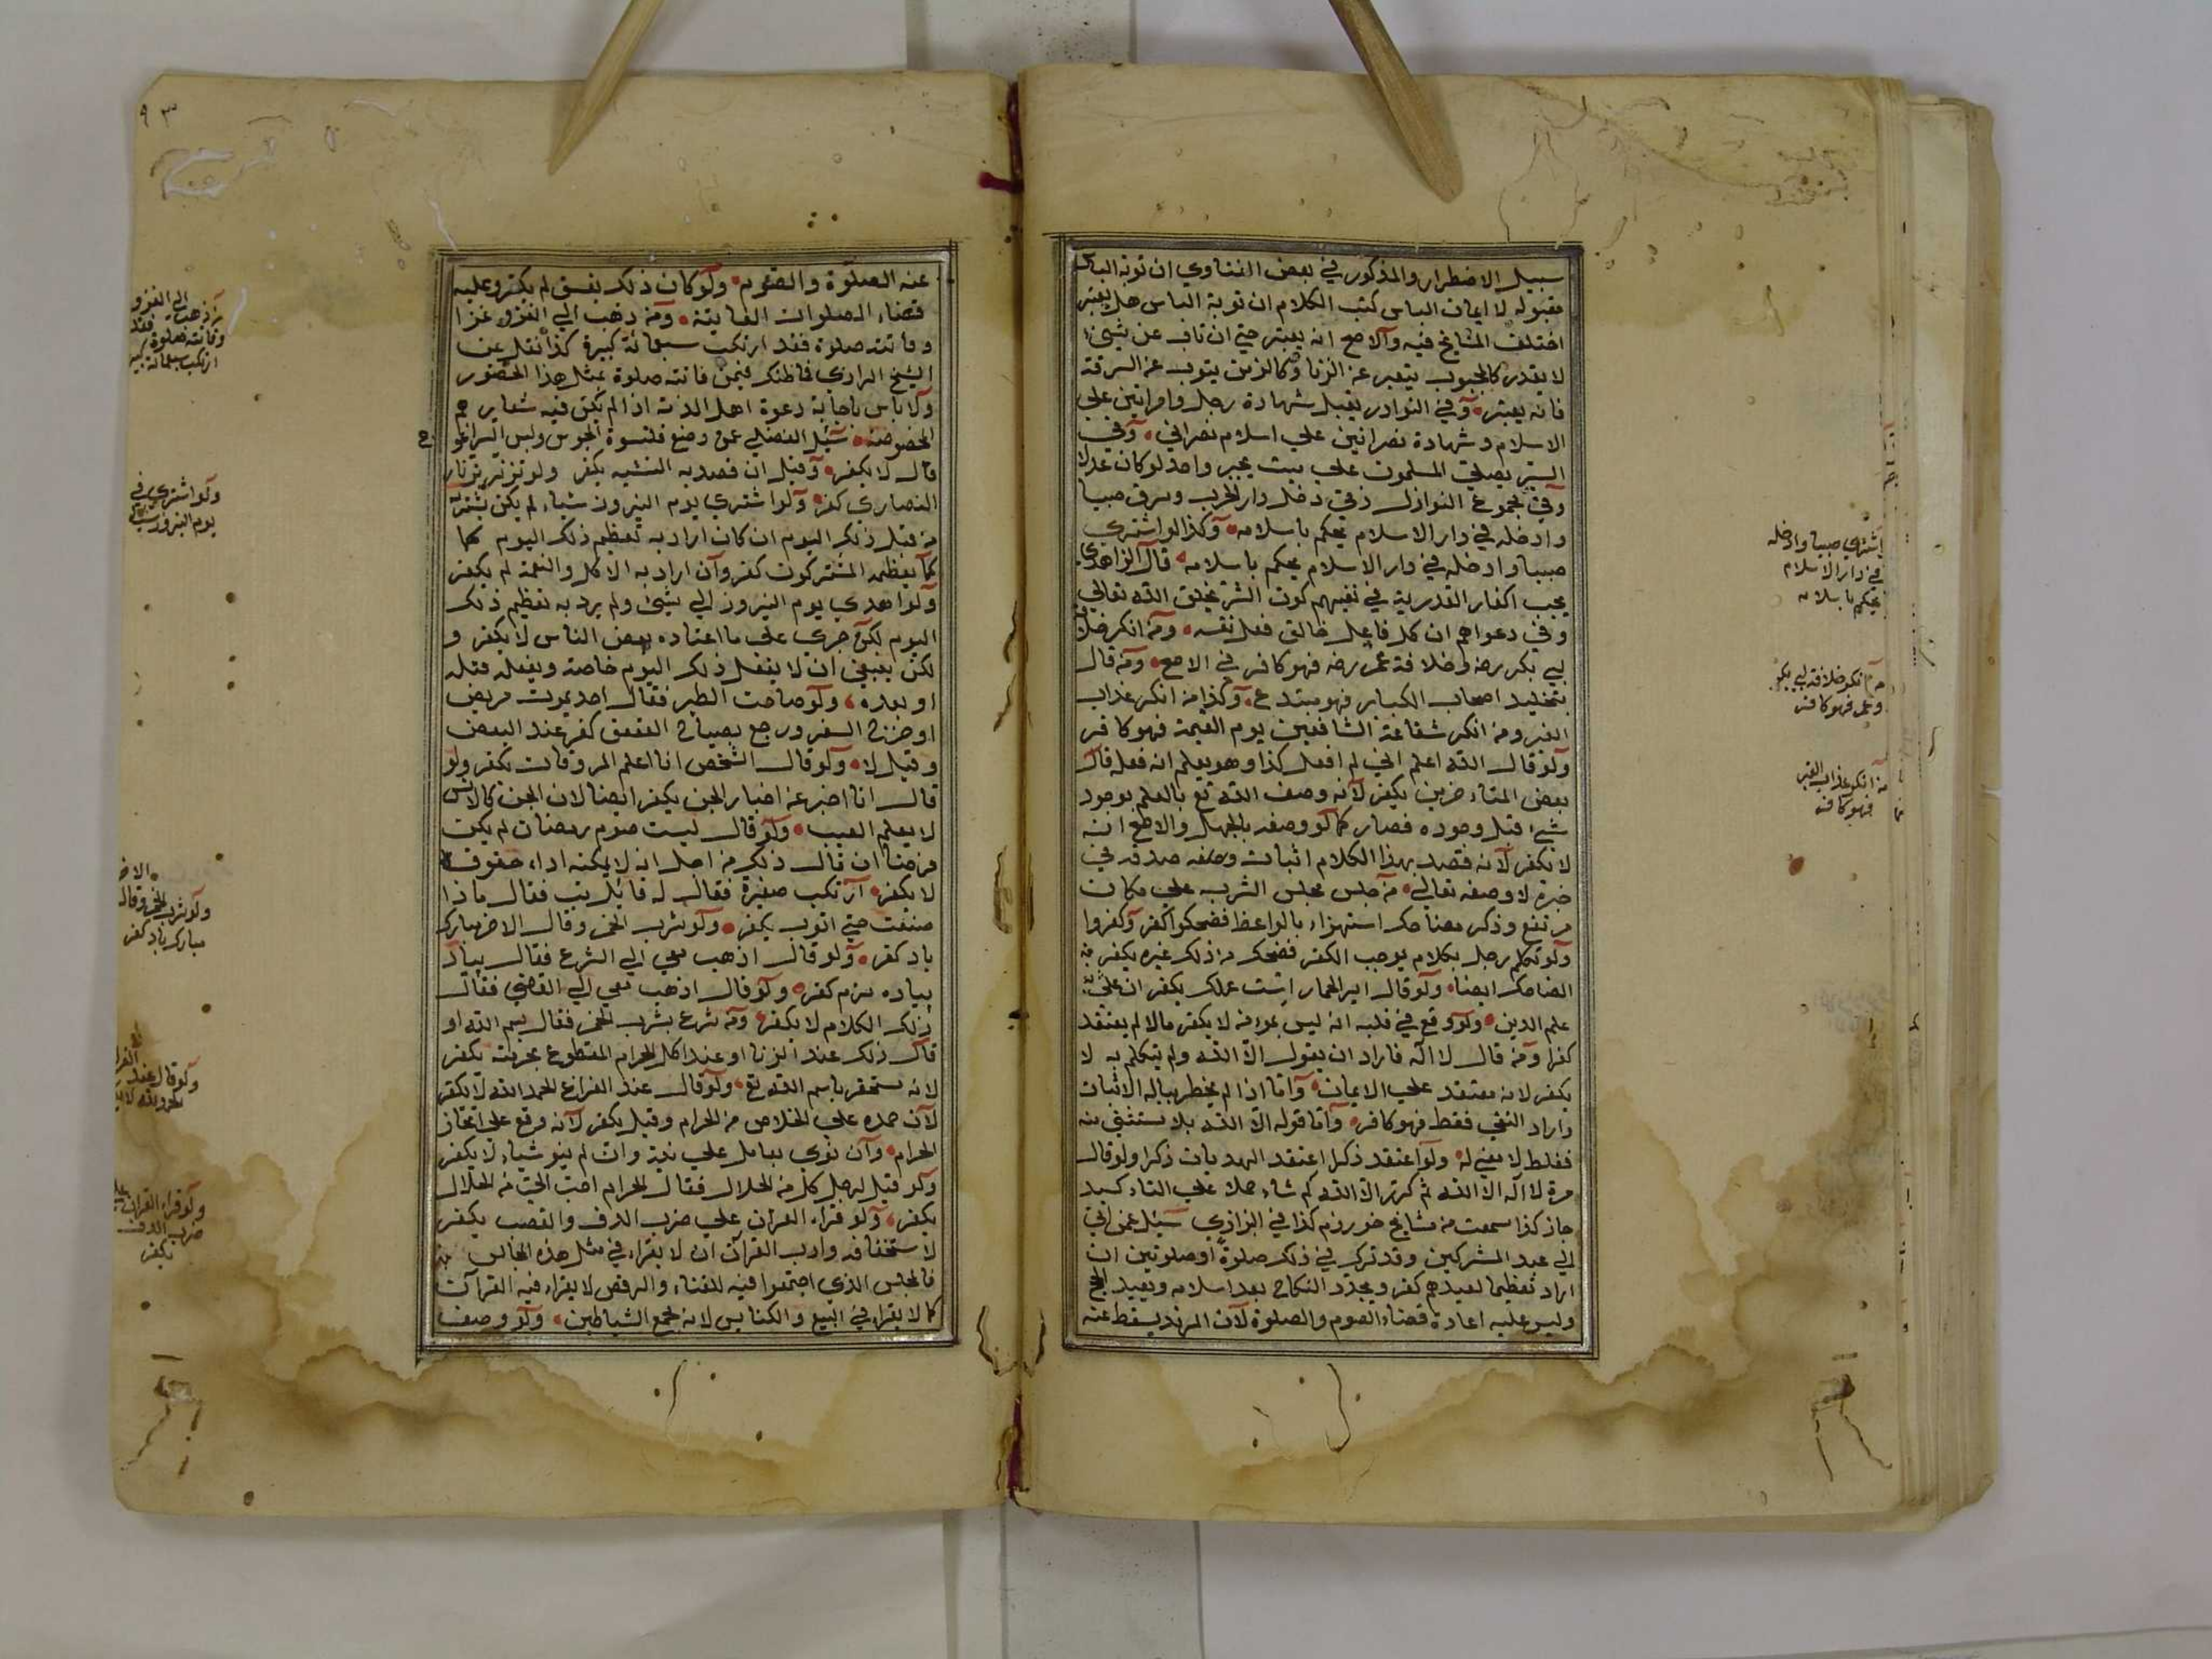 سبيل الاضطرار والمذكور في بعض الفتاوي ان توبة الياس
مقبولة لا ايمان الياس كتب الكلام ان توبة الياس هل يعتبر
اختلف المشايخ فيه والاصح انه يعتبر حتي ان تاب عن شئ
لا يقدر كالمجبوب يتعبر عن الزنا وكالزمن يتوب عن السرقة
فانه يعتبر وفي النوادر يقبل شهادة رجل وامراتين علي
الاسلام وشهادة نصرانيين علي اسلام نصراني وفي
السير يصلي المسلمون علي ميت بخبر واحد لو كان عدلا
وفي مجموع النوازل ذمي دخل دار الحرب وسرق صبيا
وادخله في دار الاسلام يحكم باسلامه وكذا لو اشتري
صبيا وادخله في دار الاسلام يحكم باسلامه قال الزاهدي
يجب اكفار القدرية في نفيهم كون الشر بخلق الله تعالي
وفي دعواهم ان كل فاعل خالق فعل نفسه ومن انكر خلافة
ابي بكر رضه وخلافة عمر رضه فهو كافر في الاصح ومن قال
بتخليد اصحاب الكباير فهو مبتدع وكذا من انكر عذاب
القبر ومن انكر شفاعة الشافعين يوم القيمة فهو كافر
ولو قال الله اعلم اني لم افعل كذا وهو يعلم انه فعله قال
بعض المتاخرين يكفر لانه وصف الله تع بالعلم بوجود
شئ قبل وجوده فصار كما لو وصفه بالجهل والاصح انه
لا يكفر لانه قصد بهذا الكلام اثبات وصفه صدقه في
خبره لا وصفه تعالي من جلس مجلس الشرب علي مكان
مرتفع وذكر مضاحك استهزاء بالواعظ فضحكوا كفر وكفروا
ولو تكلم رجل بكلام يوجب الكفر فضحك من ذلك غيره يكفر
الضاحك ايضا ولو قال اير الحمار است عملك يكفر ان عني به
علم الدين ولو وقع في قلبه انه ليس بمؤمن لا يكفر مالا لم يعتقد
كفرا ومن قال لا اله فاراد ان يقول الا الله ولم يتكلم به لا
يكفر لانه معتقد علي الايمان واما اذا لم يخطر بباله الاثبات
واراد النفي فقط فهو كافر واما قوله الا الله بلا مستثني منه
فغلط لا معني له ولو اعتقد ذكرا اعتقد الهديان ذكرا ولو قال
مرة لا اله الا الله ثم كرر الا الله كم شاء حملا علي التاكيد
جاز كذا سمعت من مشايخ خوررزم كذا في البزازي سئل عمن اتي
الي عيد المشركين وقد ترك في ذلك صلوة او صلوتين ان
اراد تعظيما لعيدهم كفر ويجدد النكاح بعد اسلامه ويعيد الحج
وليس عليه اعادة قضاء الصوم والصلوة لان المرتد يسقط عنه
اشتري صبيا وادخله
في دار الاسلام
يحكم باسلامه
من انكر خلافة ابي بكر
وعمر فهو كافر
من انكر عذاب القبر
فهو كافر
٩٣
عنه الصلوة والصوم ولو كان ذلك بفسق لم يكفر وعليه
قضاء الصلوات الفايتة ومن ذهب الي الغزو غزا
وفاتته صلوة فقد ارتكب سبعمائة كبيرة كذا نقل عن
الشيخ الرازي فاظنك فيمن فاتته صلوة بمثل هذا الحضور
ولا باس باجابة دعوة اهل الذمة اذا لم يكن فيه شعايرهم
المخصوصة سئل الفضلي عمن وضع قلنسوة المجوس ولبس
قال لا يكفر وقيل ان قصد به التشبه يكفر ولو تزنر بزنار
النصاري كفر ولو اشتري يوم النيروز شياء لم يكن يشتريه
من قبل ذلك اليوم ان كان اراد به تعظيم ذلك اليوم كما
كما يعظمه المشركون كفر وان اراد به الاكل والنعمة لم يكفر
ولو اهدي يوم النيروز الي شئ ولم يرد به تعظيم ذلك
اليوم لكن جري علي ما اعتاده بعض الناس لا يكفر و
لكن ينبغي ان لا يفعل ذلك اليوم خاصة ويفعله قبله
او بعده ولو صاحت الطير فقال احد يموت مريض
او خرج السفر ورجع بصياح العقعق كفر عند البعض
وقيل لا ولو قال الشخص انا اعلم المروقات يكفر ولو
قال انا اخبر عن اخبار الجن يكفر ايضا لان الجن كالانس
لا يعلم الغيب ولو قال ليست صوم رمضان لم يكن
فرضا ان قال ذلك من اجل انه لا يمكنه اداء حقوقه
لا يكفر ارتكب صغيرة فقال له قائل تب فقال ماذا
صنعت حتي اتوب يكفر ولو شرب الخمر وقال الاخر مبارك
باد كفر ولو قال اذهب معي الي الشرع فقال بياد
بياده نرم كفر ولو قال اذهب معي الي القاضي فقال
ذلك الكلام لا يكفر ومن شرع بشرب الخمر فقال بسم الله او
قال ذلك عند الزنا او عند اكل الحرام المقطوع بحرمته يكفر
لانه مستحقر باسم الله تع ولو قال عند الفراغ الحمد لله لا يكفر
لان حمده علي الخلاص من الحرام وقيل يكفر لانه وقع علي اتخاذ
الحرام وان نوي يعامل علي نية وان لم ينو شياء لا يكفر
ولو قيل لرجل كل من الحلال فقال الحرام احب الي من الحلال
يكفر ولو قراء القران علي ضرب الدف والقصب يكفر
لاستخفافه وادب القرآن ان لا يقراء في مثل هذه المجالس
فالمجلس الذي اجتمعوا فيه للغناء والرقص لا يقراء فيه القرآن
كما لا يقراء في البيع والكنايس لانه مجمع الشياطين ولو وصف
من ذهب الي الغزو
وفاتته صلوة فقد
ارتكب سبعمائة كبير
ولو اشتري في
يوم النيروز
ولو شرب الخمر وقال
مبارك باد كفر
ولو قال عند
ولو قراء القران
ضرب الدف
يكفر